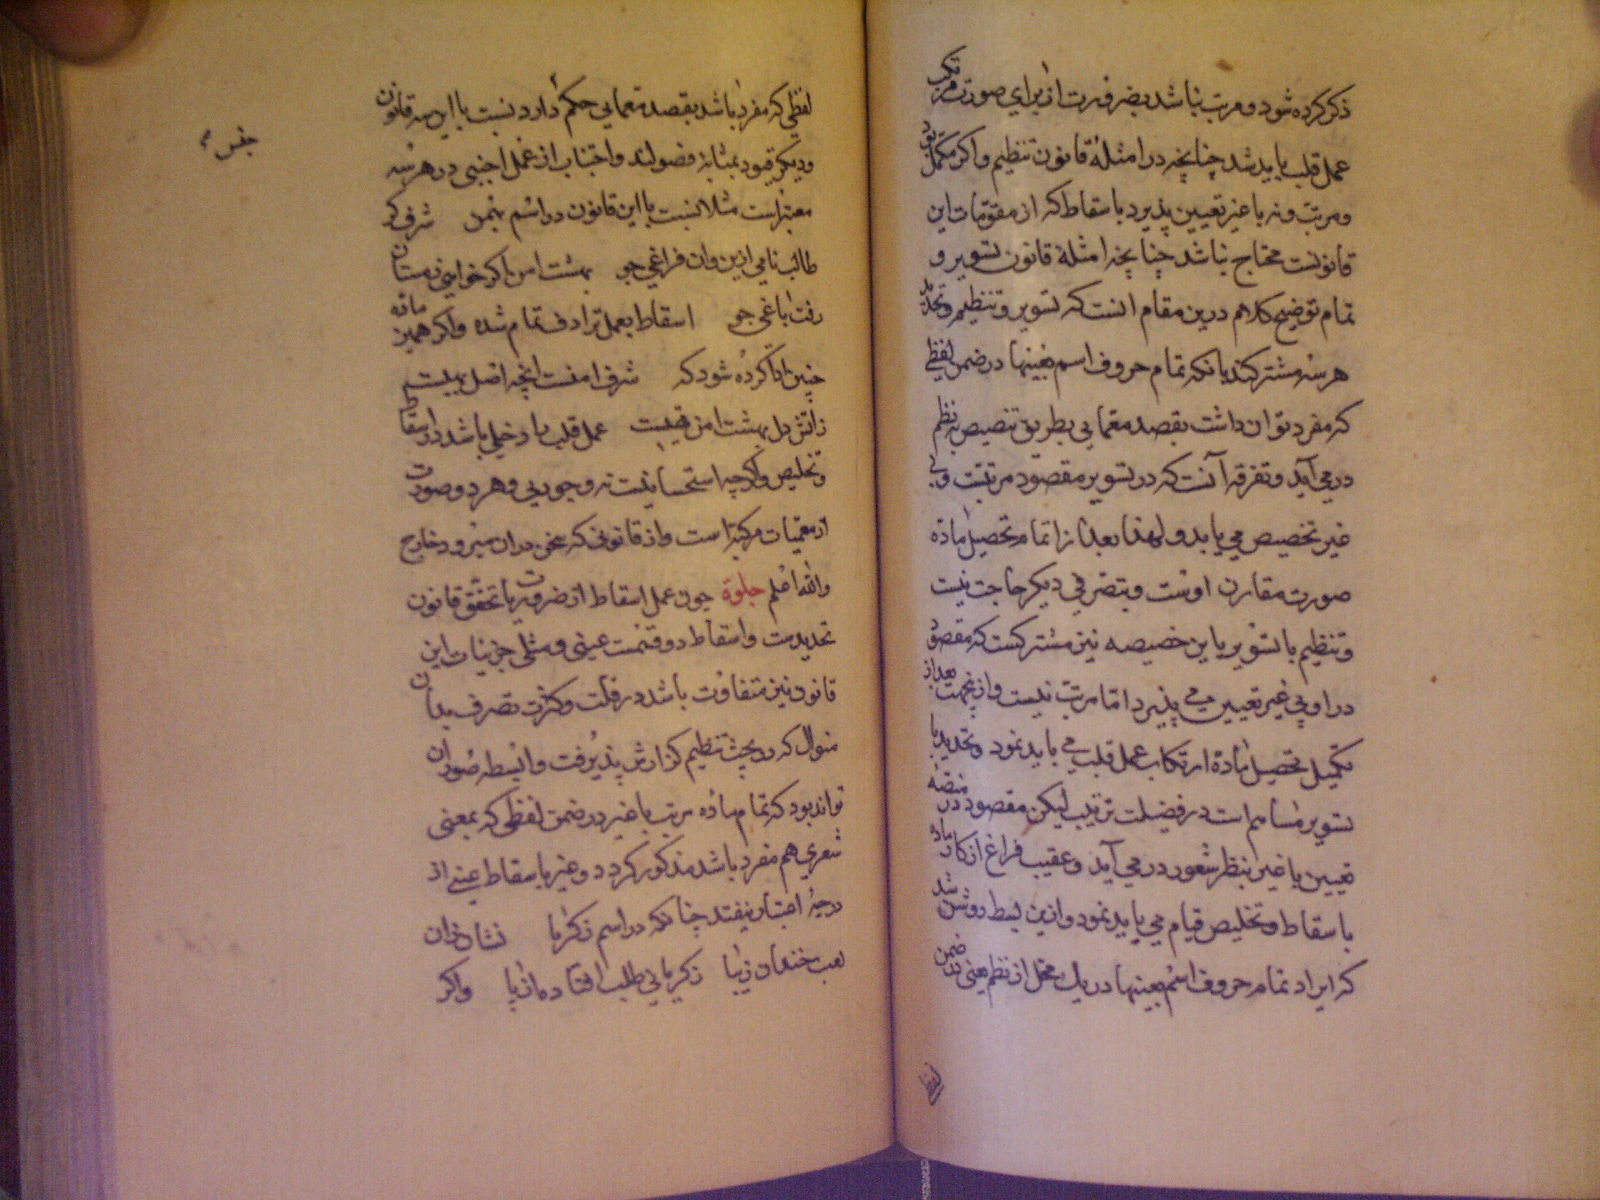 ذکر کرده شود و مرتب نباشد بضرورت از برای صورت ترکیب
عمل قلب باید شد چنانچه در امثلهٔ قانون تنظیم و اگر مکمل بود
و مرتب و نه باغیر تعیین پذیرد باسقاط که از مقومات این
قانونست محتاج نباشد چنانچه امثلهٔ قانون تسویر و
تمام توضیح کلام درین مقام انست که تسویر و تنظیم و تحدید
هر سه مشترکند بانکه تمام حروف اسم بعینها در ضمن لفظی
که مفرد توان داشت بقصد معمایی بطریق تنصیص بنظم
در می آید و تفرقه آنست که در تسویر مقصود مرتبست و بی
غیر تخصیص می یابد و لهذا بعد از اتمام تحصیل ماده
صورت مقارن اوست و بتصرفی دیگر حاجت نیست
و تنظیم با تسویر باین خصیصه نیز مشترکست که مقصود
در او بی غیر تعیین می پذیرد اما مرتب نیست و ازینجهت بعد از
تکمیل تحصیل ماده ارتکاب عمل قلب می باید نمود و تحدید با
تسویر مساهم است در فضیلت ترتیب لیکن مقصود در منصهٔ
تعیین باغیر بنظر شعور در می آید و عقیب فراغ از کار ماده
باسقاط و تخلیص قیام می باید نمود و ازین بسط روشن شد
که ایراد تمام حروف اسم بعینها در یک محل از نظم یعنی در ضمن
لفظی که مفرد باشد بقصد معمایی حکم دارد نسبت با این سه قانون
و دیگر قیود بمثابهٔ فصولند و اجتناب از عمل اجنبی در هر سه
معتبر است مثلا نسبت با این قانون در اسم بهمن شرف کر
طالب نامی ازین وان فراغی جو بهشت امن اگر خواهی زمستان
رفت باغی جو اسقاط بعمل ترادف تمام شده و اگر همین ماده
چنین ادا کرده شود که شرف امنست انچه اصل بهیست
زاتش دل بهشت امن تهیست عمل قلب را دخلی باشد در اسقاط
و تخلیص و اگرچه استحسانیست نه وجوبی و هر دو صورت
از معمیات مرکبه است و از قانونی که سخن در ان میرود خارج
والله اعلم جلوة چون عمل اسقاط از ضروریات تحقق قانون
تحدیدست و اسقاط دو قسمست عینی و مثلی جزئیات این
قانون نیز متفاوت باشد در قلت و کثرت تصرف بدان
منوال که در بحث تنظیم گزارش پذیرفت و ابسطه صور ان
تواند بود که تمام ماده مرتب باغیر در ضمن لفظی که بمعنی
شعری هم مفرد باشد مذکور گردد و غیر باسقاط عینی از
درجهٔ اعتبار بیفتد چنانکه در اسم زکریا نشان زان
لعب خندان زیبا زکریایی طلب افتاده از پا و اگر